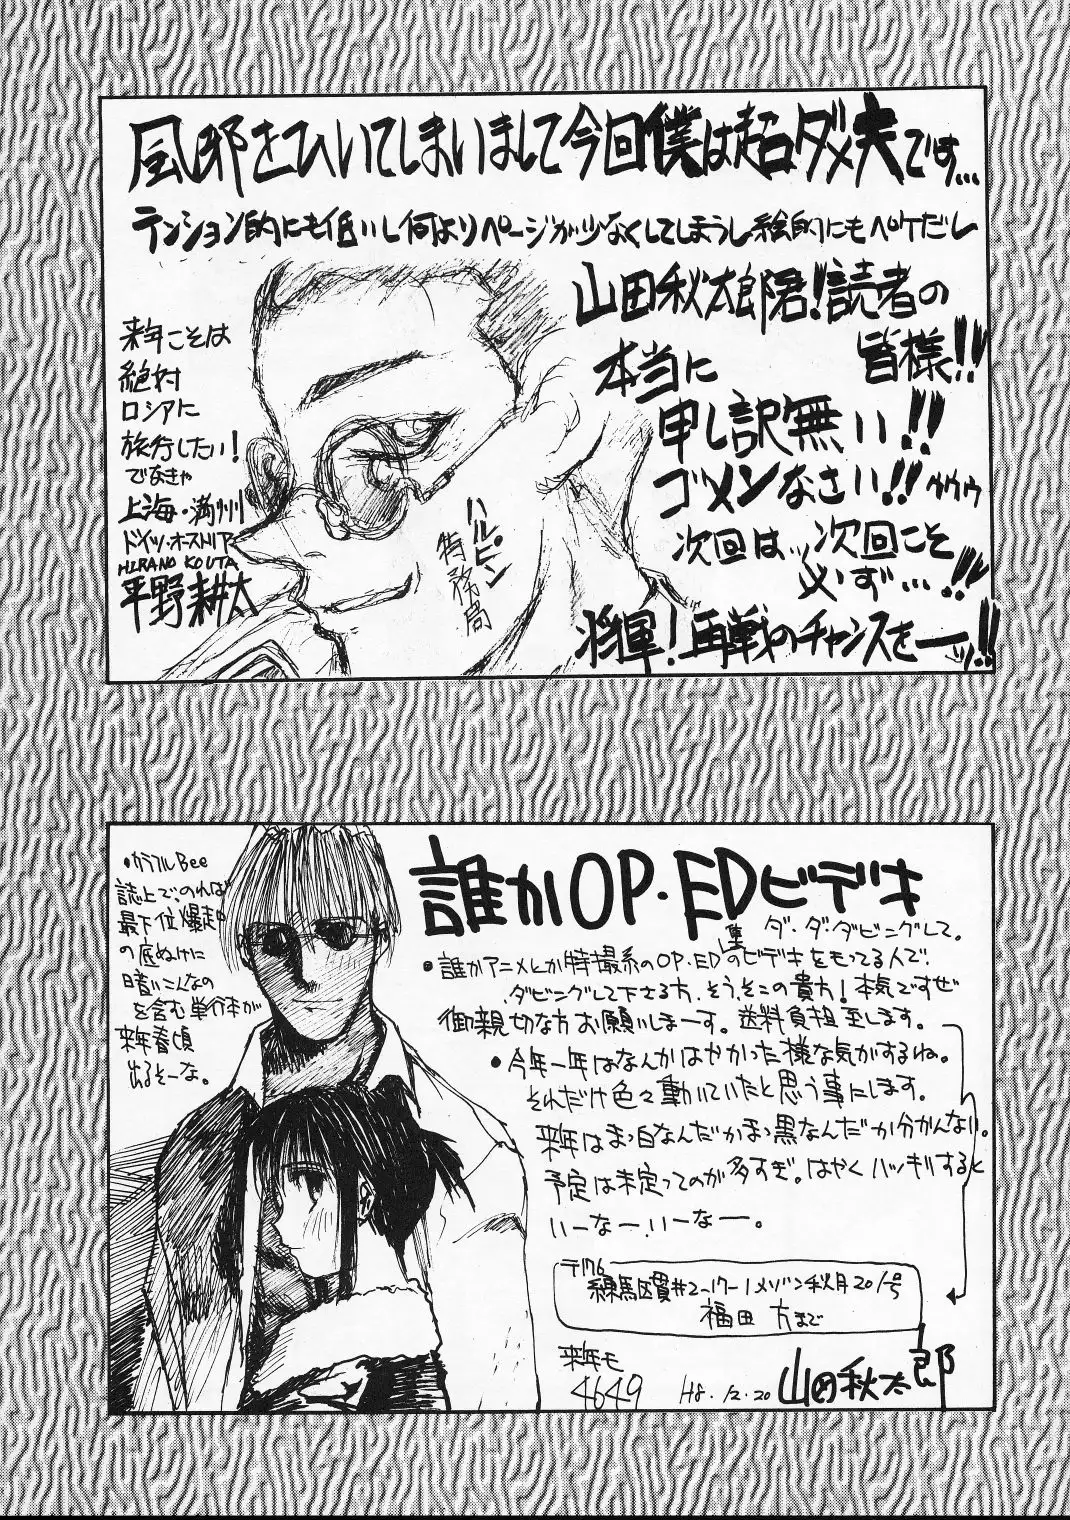 風邪をひいてしまいまして今回僕は超ダメ夫です…
テンション的にも低いし何よりページが少なくしてしまうし絵的にもペケだし
山田秋太郎君!読者の
皆様!!
本当に
申し訳無い!!
ゴメンなさい!!ウウウ
次回は…次回こそ
必ず…!!
将軍!再戦のチャンスをーッ!!
来年こそは
絶対
ロシアに
旅行したい!
でなきゃ
上海・満州
ドイツ・オーストリア
HIRANO KOUTA
平野耕太
ハルピン
特務局
誰かOP・EDビデキ
ダ・ダ・ダビングして。
・誰かアニメとか特撮系のOP・ED集のビデキをもってる人で、
ダビングして下さる方、そう、そこの貴方!本気ですぜ
御親切な方お願いしまーす。送料負担至します。
・今年一年はなんかはやかった様な気がするね。
それだけ色々動いていたと思う事にします。
来年はまっ白なんだかまっ黒なんだか分かんない。
予定は未定ってのが多すぎ。はやくハッキリすると
いーなー、いーなー。
〒176
練馬区貫井2-17-1メゾン秋月201号
福田 方まで
来年モ
4649
H8.12.20
山田秋太郎
・カラフルBee
誌上でのれば
最下位爆走中
の底ぬけに
暗いこんなの
を含む単行本が
来年春頃
出るそーな。